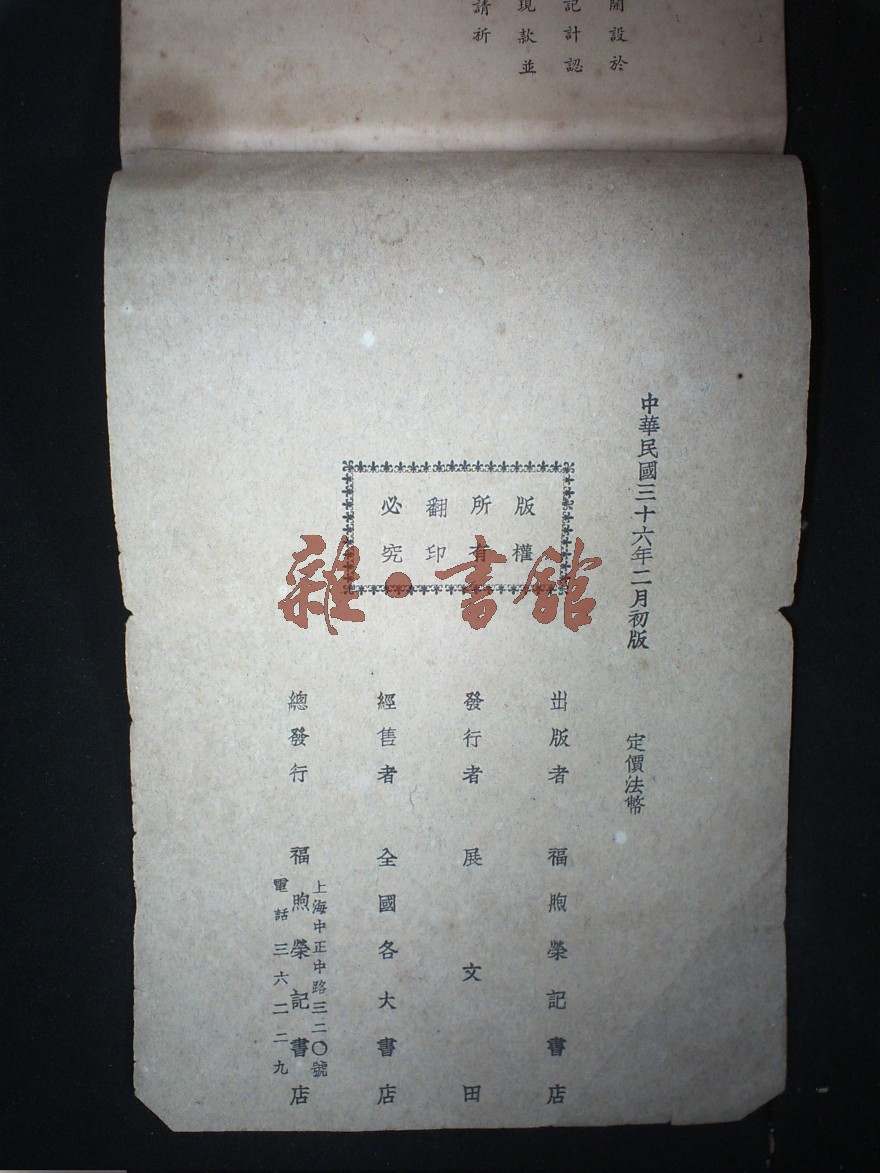 開設於
記計認
現款並
請祈
中華民國三十六年二月初版
定價法幣
版權
所有
翻印
必究
雜·書館
出版者 福煦榮記書店
發行者 展文田
經售者 全國各大書店
總發行 福煦榮記書店
上海中正中路三二〇號
電話三六二二九